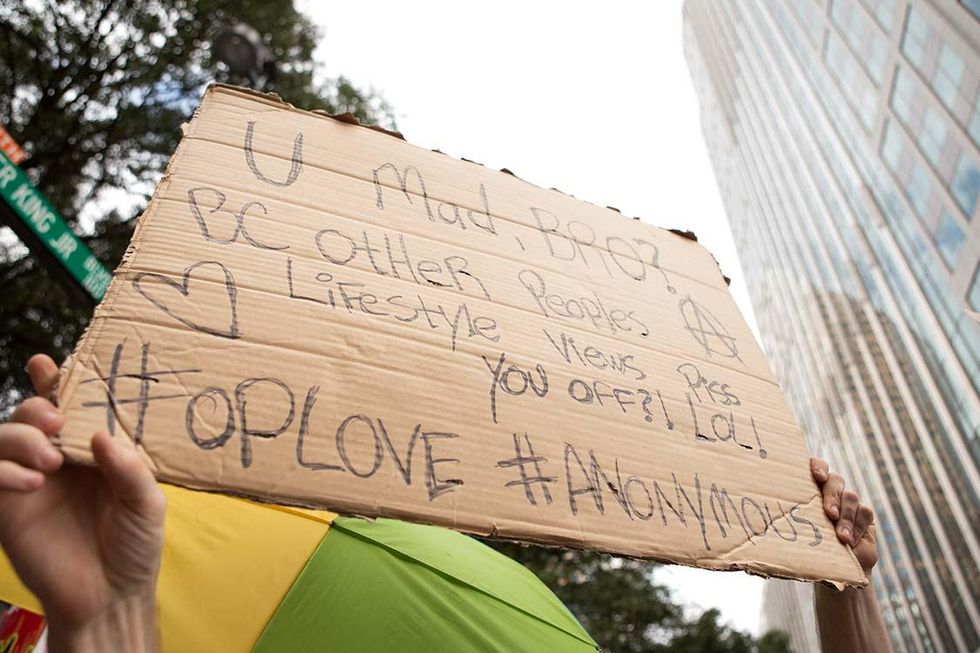 U Mad, BRO?
BC OtHeR Peoples
LiFestyle Views Piss
YOU OFF?! LOL!
#OPLOVE #ANONYMOUS
ER KING JR